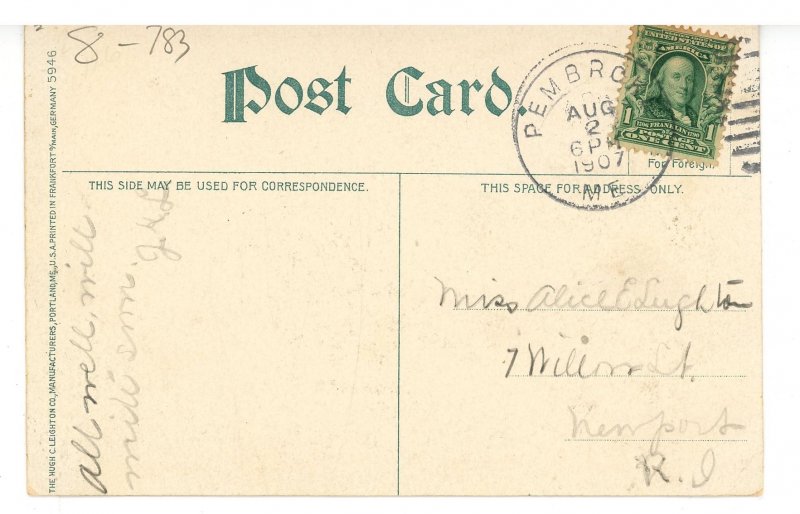 8 - 783
Post Card.
PEMBRO
AUG
2
6 PM
1907
ME
UNITED STATES OF
AMERICA
1706 FRANKLIN 1790
POSTAGE
1 1
ONE CENT
For Foreign
THIS SIDE MAY BE USED FOR CORRESPONDENCE.
THIS SPACE FOR ADDRESS ONLY.
All well, will
write soon,
Miss Alice E Leighton
7 Willow St.
Newport
R. I
THE HUGH C. LEIGHTON CO., MANUFACTURERS, PORTLAND, ME., U. S. A. PRINTED IN FRANKFORT o/MAIN, GERMANY 5946